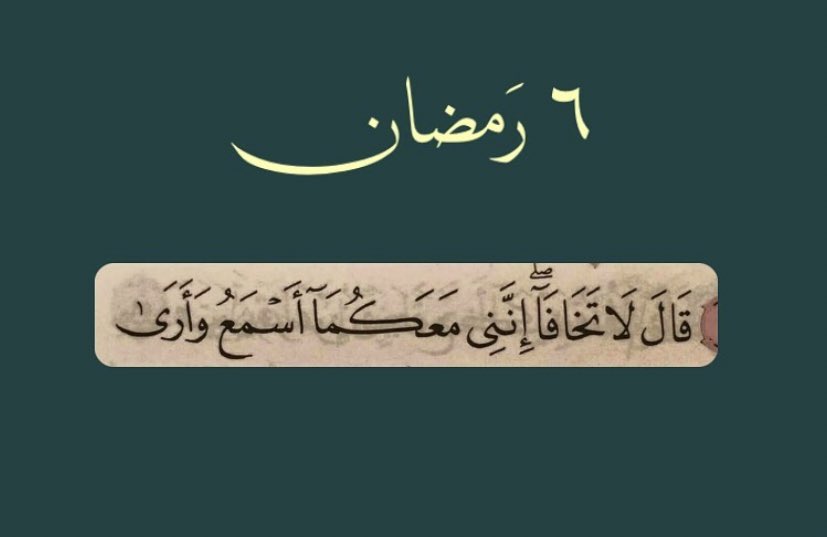 ٦ رَمضان
قَالَ لَا تَخَافَآ ۖ إِنَّنِى مَعَكُمَآ أَسْمَعُ وَأَرَىٰ